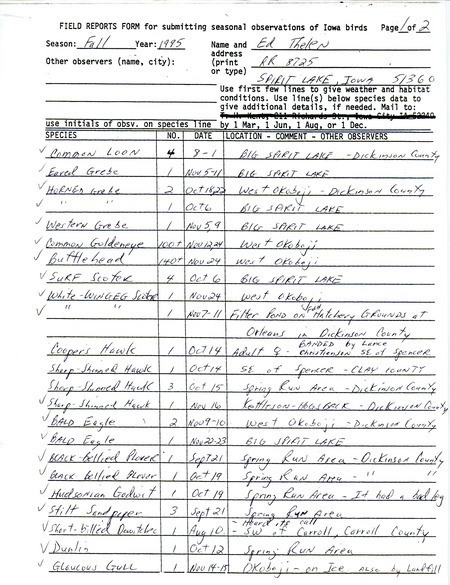 FIELD REPORTS FORM for submitting seasonal observations of Iowa birds Page 1 of 2
Season: Fall Year: 1995 Name and address (print or type) Ed Thelen
Other observers (name, city): RR 8725
SPIRIT LAKE, Iowa 51360
Use first few lines to give weather and habitat
conditions. Use line(s) below species data to
give additional details, if needed. Mail to:
use initials of obsv. on species line by 1 Mar, 1 Jun, 1 Aug, or 1 Dec.
SPECIES NO. DATE LOCATION - COMMENT - OTHER OBSERVERS
✓ Common Loon 4 8-1 BIG SPIRIT LAKE - Dickinson County
✓ Eared Grebe 1 Nov 5-11 BIG SPIRIT LAKE
✓ Horned Grebe 2 Oct 18,22 West Okoboji - Dickinson County
✓ " " 1 Oct 6 BIG SPIRIT LAKE
✓ Western Grebe 1 Nov 5,9 BIG SPIRIT LAKE
✓ Common Goldeneye 100+ Nov 12,24 West Okoboji
✓ Bufflehead 140+ Nov 24 West Okoboji
✓ Surf Scoter 4 Oct 6 BIG SPIRIT LAKE
✓ White-WINGEG Scoter 1 Nov 24 West Okoboji
✓ " " 1 Nov 7-11 Filter Pond on Fish Hatchery GROUNDS at
Orleans in Dickinson County
✓ Coopers Hawk 1 Oct 14 Adult ♀ - BANDED by Lance Christianson SE of Spencer
✓ Sharp-Shinned Hawk 1 Oct 14 SE of Spencer - CLAY COUNTY
✓ Sharp-Shinned Hawk 3 Oct 15 Spring Run Area - Dickinson County
✓ Sharp-Shinned Hawk 1 Nov 16 Kettleson-HOGSBACK - Dickinson County
✓ BALD Eagle 2 Nov 9-10 West Okoboji - Dickinson County
✓ BALD Eagle 1 Nov 22-23 BIG SPIRIT LAKE
✓ BLACK-Bellied Plover 1 Sept 21 Spring Run Area - Dickinson County
✓ BLACK Bellied Plover 1 Oct 19 Spring Run Area - " "
✓ Hudsonian Godwit 1 Oct 19 Spring Run Area - It had a bad leg
✓ Stilt Sandpiper 3 Sept 21 Spring Run Area
✓ Short-billed Dowitcher 1 Aug 10 - Heard its call - SW of Carroll, Carroll County
✓ Dunlin 1 Oct 12 Spring Run Area
✓ Glaucous Gull 1 Nov 14-15 Okoboji - on Ice Also by Landfill